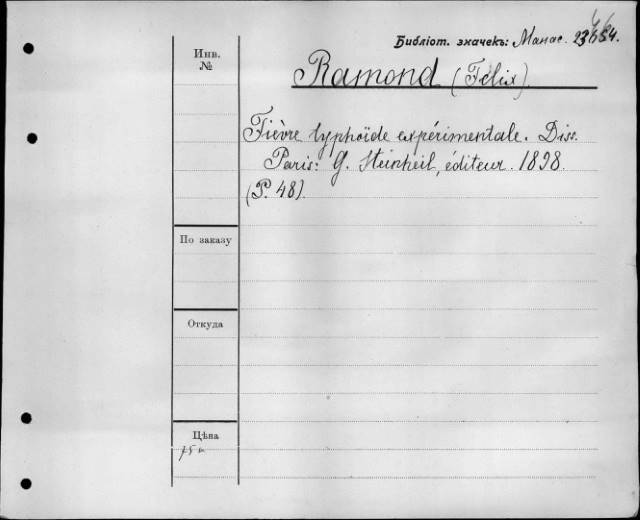 Библіот. значекъ: Манас.
Инв.
№
Ramond (Félix).
Fièvre typhoïde expérimentale. Diss.
Paris: G. Steinheil, éditeur. 1898.
(P. 48).
По заказу
Откуда
Цѣна
75 к